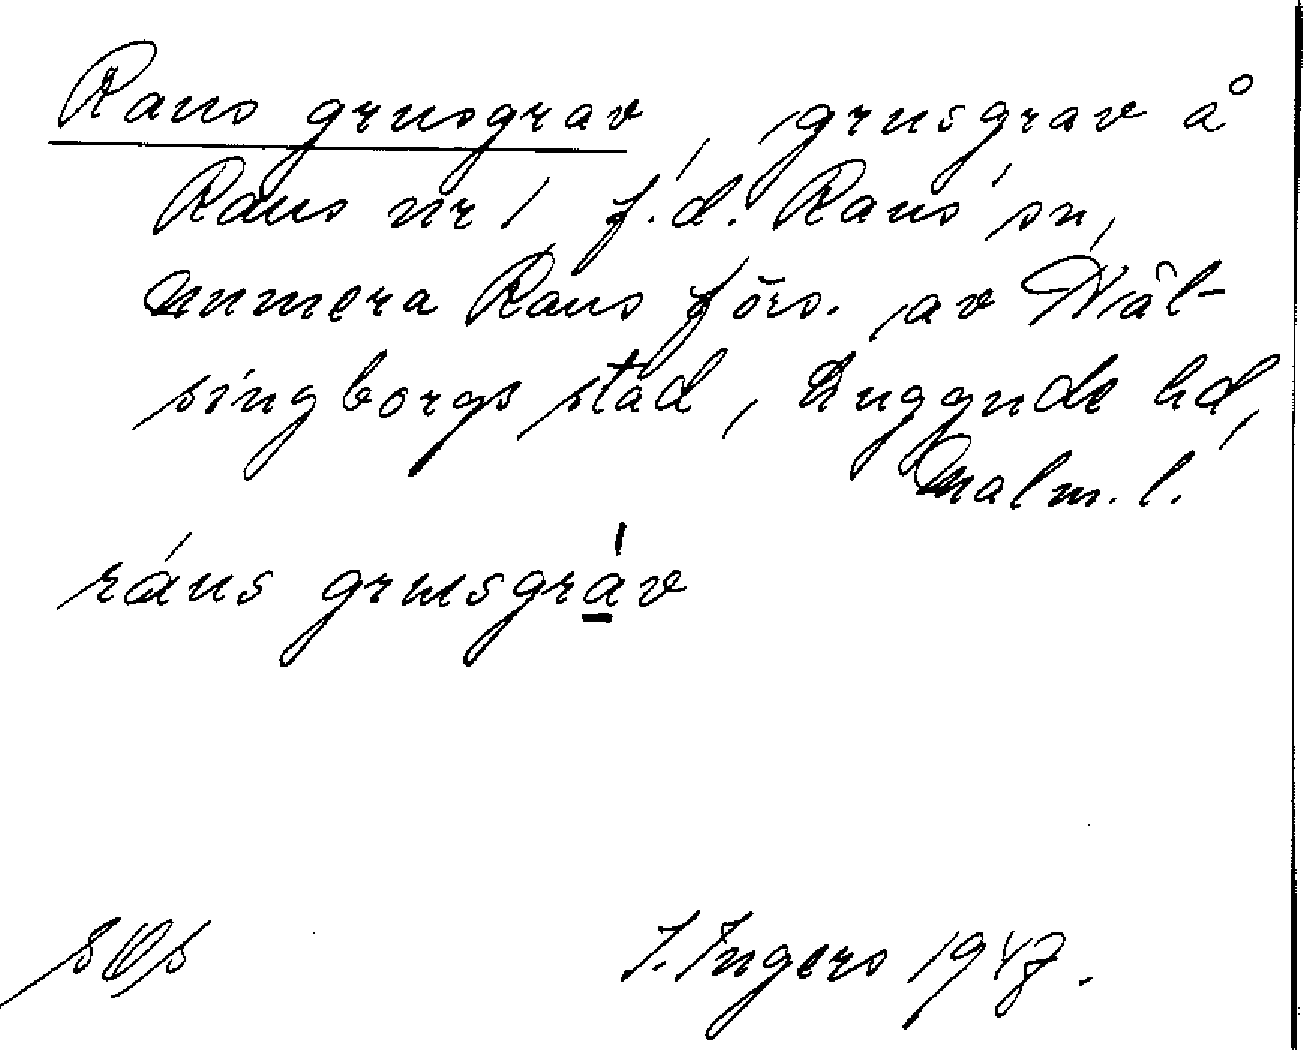 Raus grusgrav, grusgrav å
Raus nr 1 f.d. Raus sn,
numera Raus förs. av Häl-
singborgs stad, Luggude hd,
Malm. l.
ráus grusgráv
I. Ingers 1947.